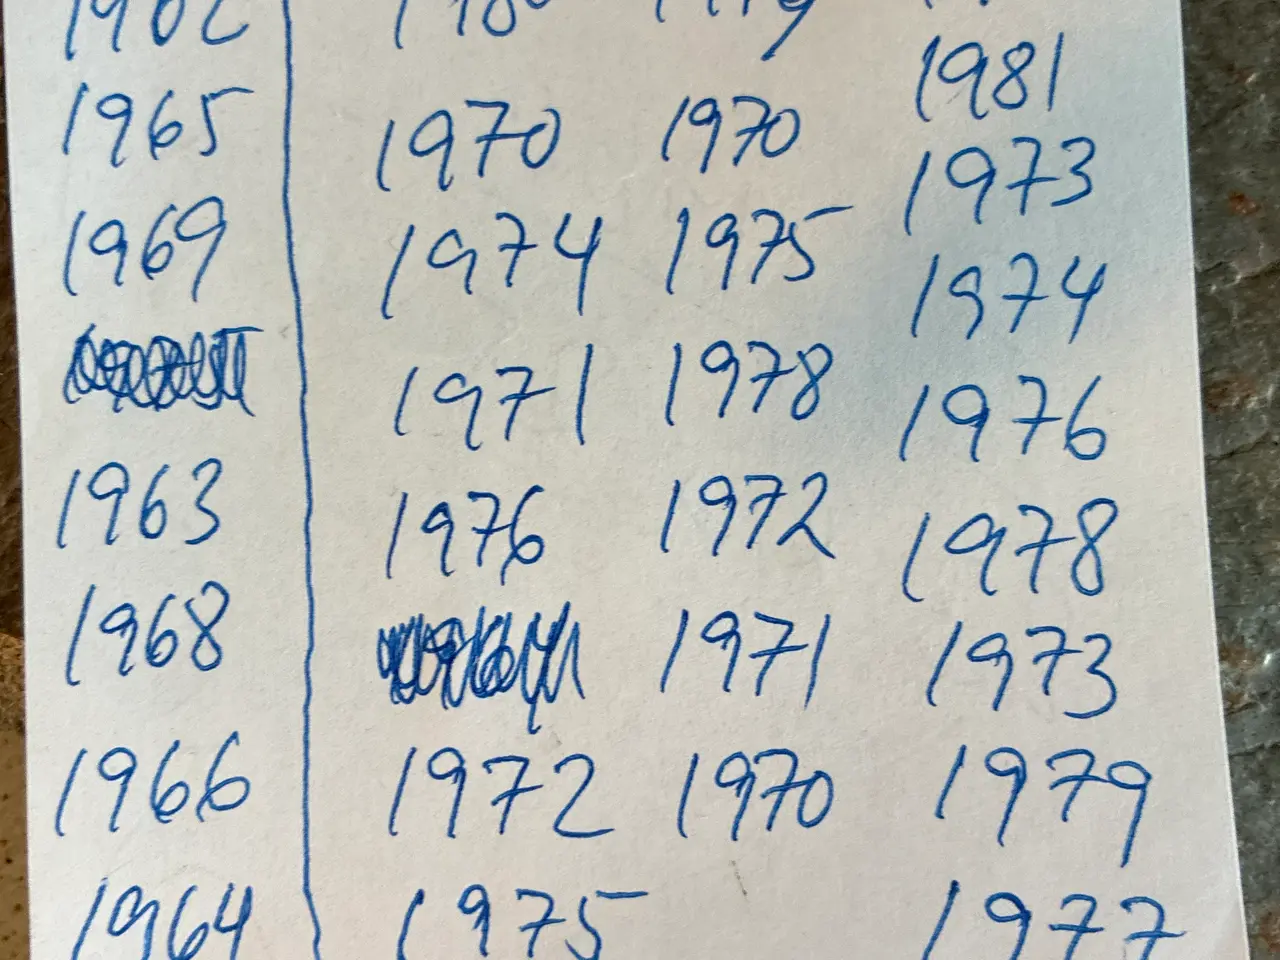 1965 1970 1970 1981
1969 1974 1975 1973
1971 1978 1974
1963 1976 1972 1976
1968 1971 1978
1966 1972 1970 1973
1964 1975 1979
1977